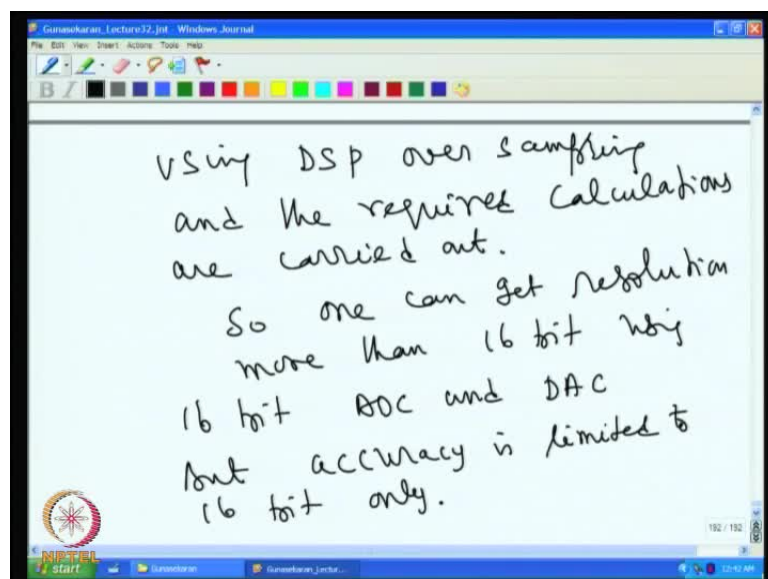 Gunasekaran_Lecture32.jnt - Windows Journal
File Edit View Insert Actions Tools Help
B I
Using DSP over sampling
and the required calculations
are carried out.
So one can get resolution
more than 16 bit using
16 bit ADC and DAC
but accuracy is limited to
16 bit only.
192 / 192
NPTEL
start Gunasekaran Gunasekaran_Lectur... 12:42 AM